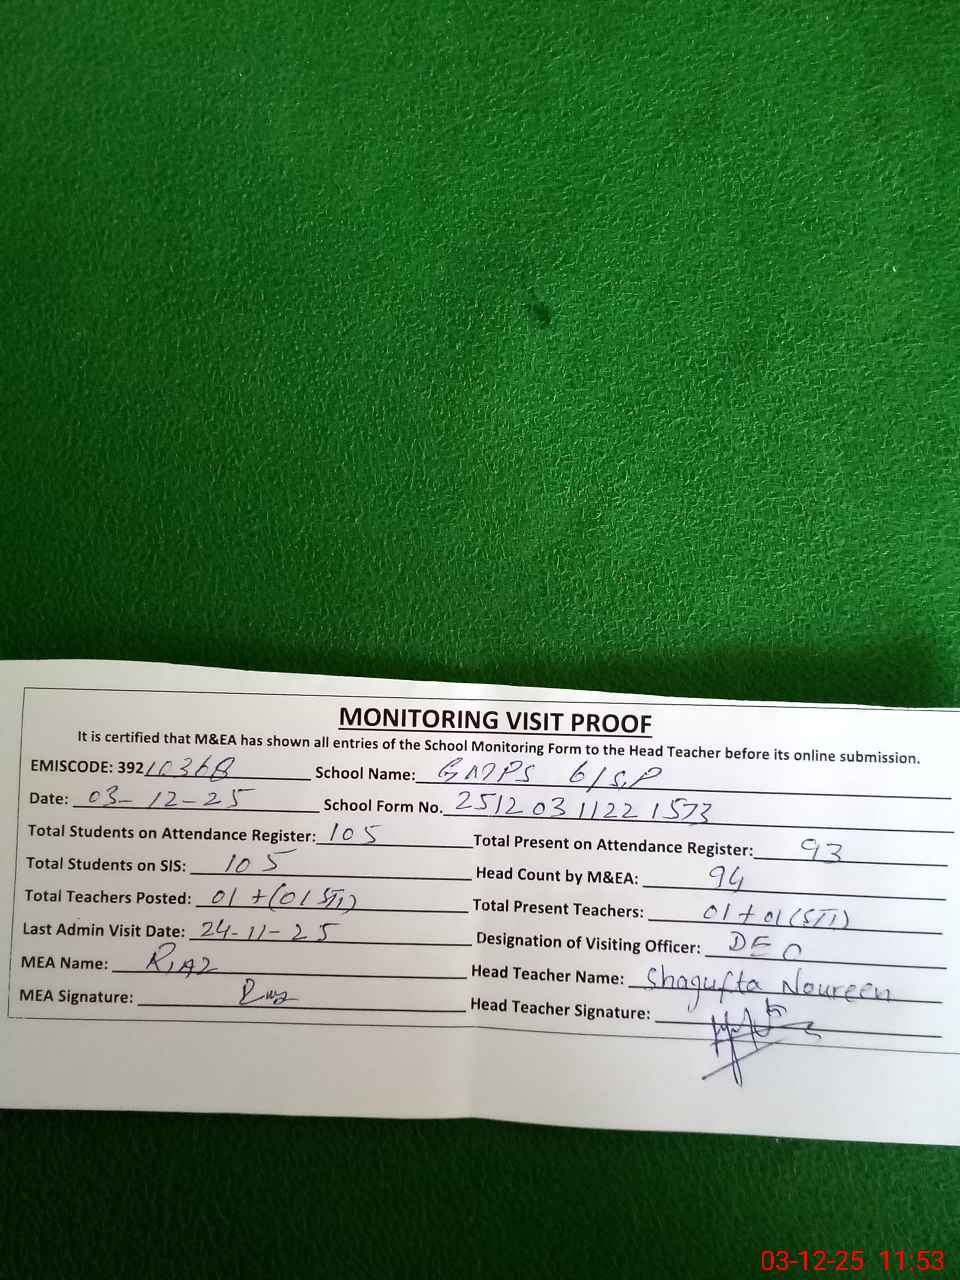 MONITORING VISIT PROOF
It is certified that M&EA has shown all entries of the School Monitoring Form to the Head Teacher before its online submission.
EMISCODE: 39210368 School Name: GMPS 6/S.P
Date: 03-12-25 School Form No. 25120311221573
Total Students on Attendance Register: 105 Total Present on Attendance Register: 93
Total Students on SIS: 105 Head Count by M&EA: 94
Total Teachers Posted: 01+(01 STI) Total Present Teachers: 01+01(STI)
Last Admin Visit Date: 24-11-25 Designation of Visiting Officer: DEO
MEA Name: Riaz Head Teacher Name: Shagufta Noureen
MEA Signature: Head Teacher Signature:
03-12-25 11:53